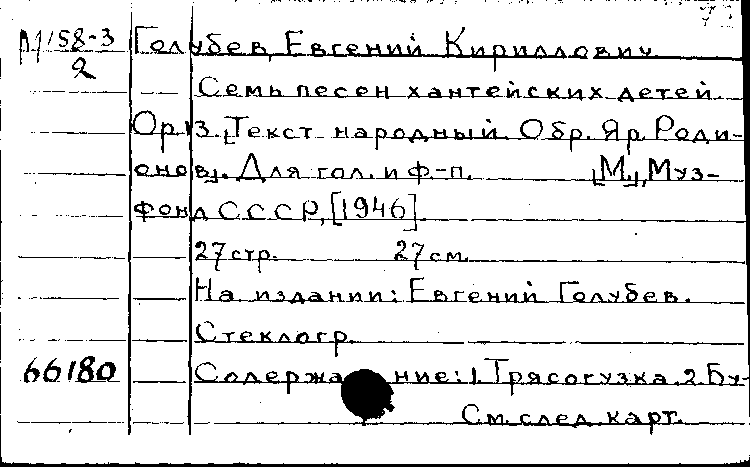 158-3 Голубев, Евгений Кириллович
2
Семь песен хантейских детей.
Ор. 13. [Текст народный. Обр. Яр. Роди-
онов]. Для гол. и ф-п. [М.], Муз-
фонд СССР, [1946].
27 стр. 27 см.
На издании: Евгений Голубев.
Стеклогр.
66180 Содержание: 1. Трясогузка. 2. Бу-
См. след. карт.